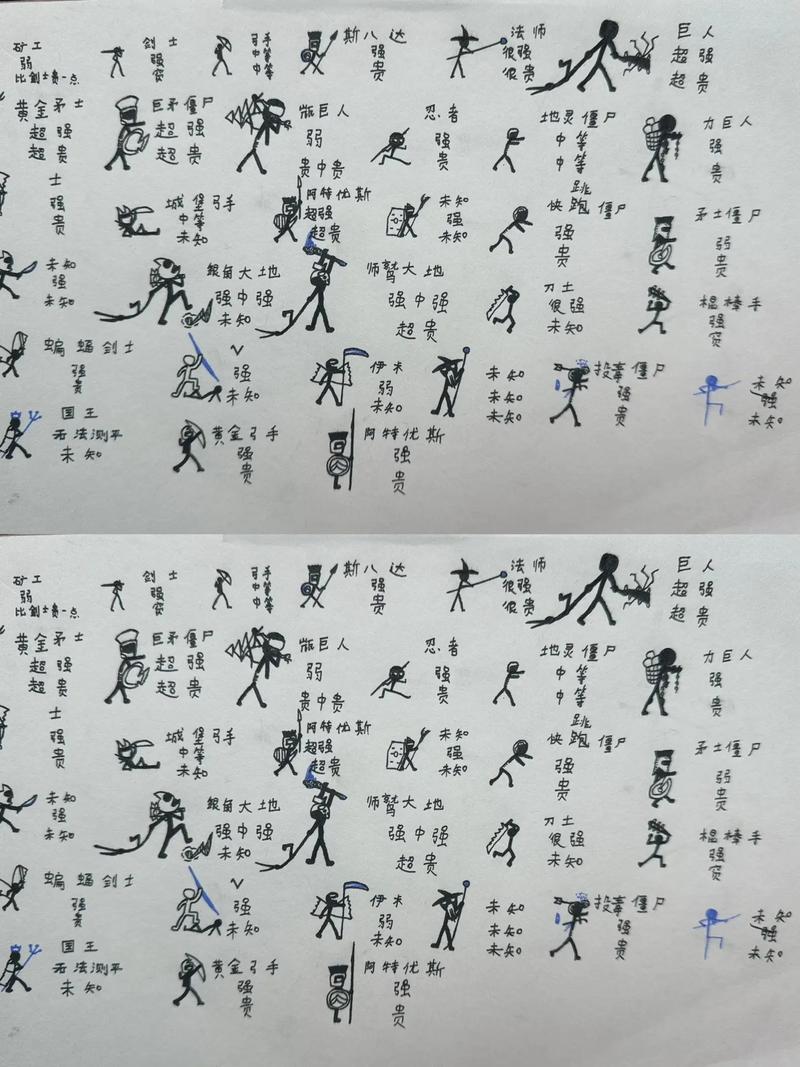 矿工
弱
比剑士贵一点
剑士
强
贫
弓手
中等
中等
斯八达
强
贵
法师
很强
很贵
巨人
超强
超贵
黄金矛士
超强
超贵
巨矛僵尸
超强
超贵
巨人
弱
贵中贵
忍者
强
贵
地灵僵尸
中等
中等
力巨人
强
贵
士
强
贵
城堡弓手
中等
未知
阿特优斯
超强
超贵
未知
强
未知
跳
快跑僵尸
强
贵
矛士僵尸
弱
贵
未知
强
未知
银角大地
强中强
未知
师鹫大地
强中强
超贵
刀士
很强
未知
棍棒手
强
贫
蝙蝠剑士
强
贵
V
强
未知
伊卡
弱
未知
未知
未知
未知
投毒僵尸
强
贵
未知
强
未知
国王
无法测平
未知
黄金弓手
强
贵
阿特优斯
强
贵
矿工
弱
比剑士贵一点
剑士
强
贫
弓手
中等
中等
斯八达
强
贵
法师
很强
很贵
巨人
超强
超贵
黄金矛士
超强
超贵
巨矛僵尸
超强
超贵
巨人
弱
贵中贵
忍者
强
贵
地灵僵尸
中等
中等
力巨人
强
贵
士
强
贵
城堡弓手
中等
未知
阿特优斯
超强
超贵
未知
强
未知
跳
快跑僵尸
强
贵
矛士僵尸
弱
贵
未知
强
未知
银角大地
强中强
未知
师鹫大地
强中强
超贵
刀士
很强
未知
棍棒手
强
贫
蝙蝠剑士
强
贵
V
强
未知
伊卡
弱
未知
未知
未知
未知
投毒僵尸
强
贵
未知
强
未知
国王
无法测平
未知
黄金弓手
强
贵
阿特优斯
强
贵